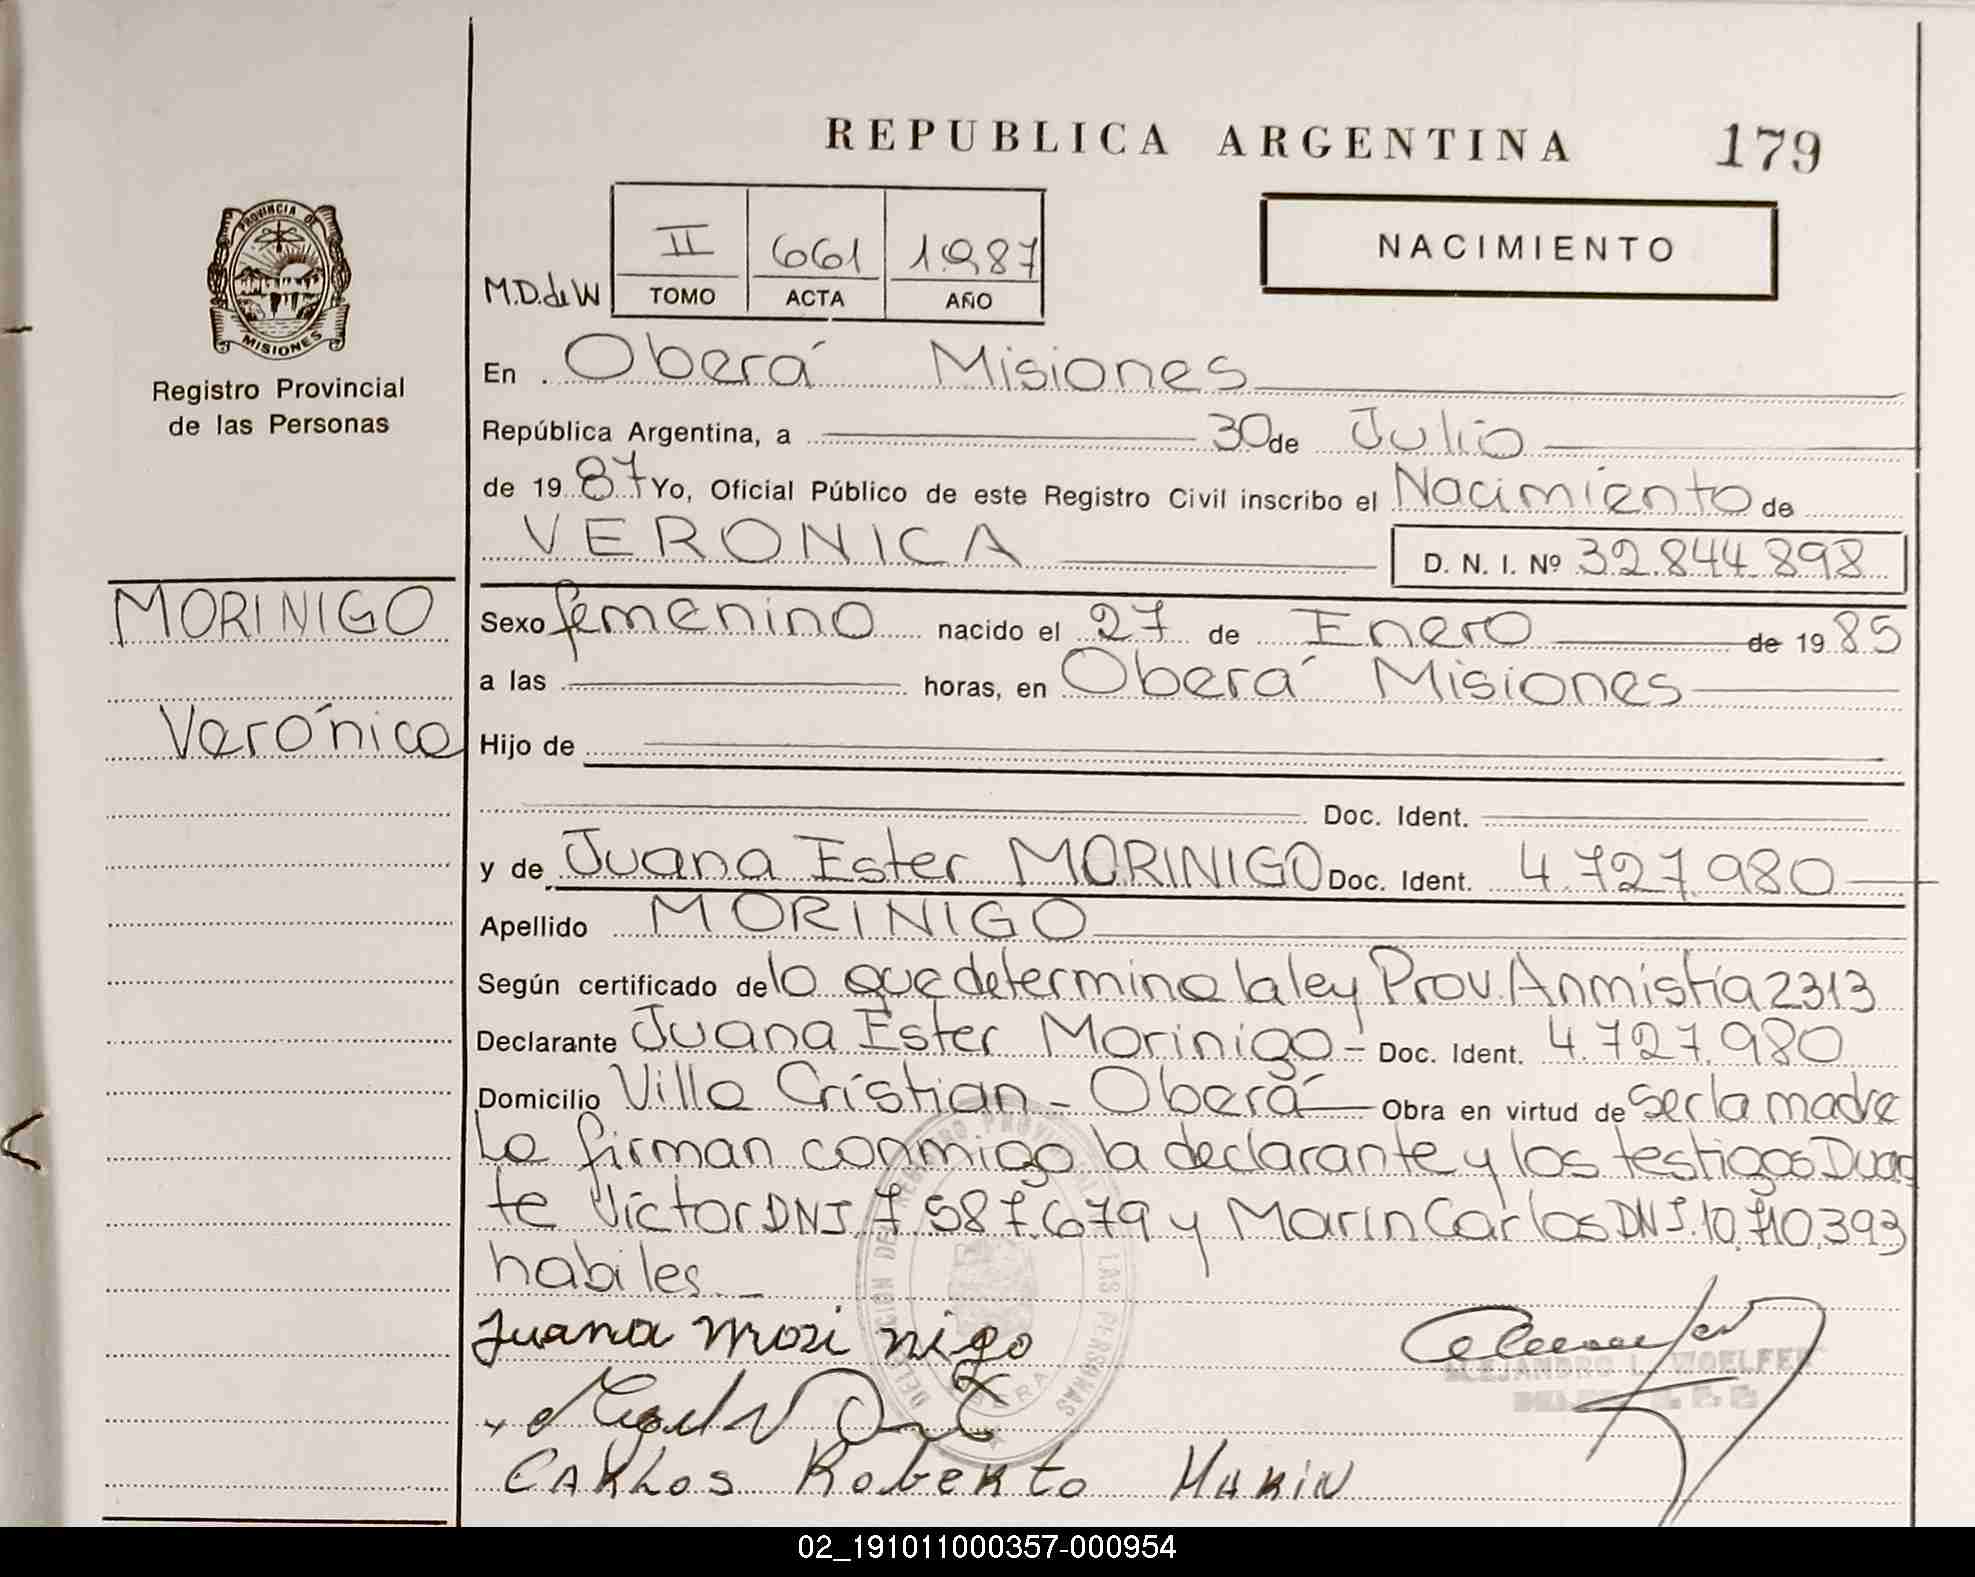 REPUBLICA ARGENTINA 179
PROVINCIA DE
MISIONES
Registro Provincial
de las Personas
M.D.deW
II 661 1.987
TOMO ACTA AÑO
NACIMIENTO
En Oberá Misiones
República Argentina, a 30 de Julio
de 19 87 Yo, Oficial Público de este Registro Civil inscribo el Nacimiento de
VERONICA D. N. I. Nº 32.844.898
MORINIGO
Verónica
Sexo femenino nacido el 27 de Enero de 19 85
a las horas, en Oberá Misiones
Hijo de
Doc. Ident.
y de Juana Ester MORINIGO Doc. Ident. 4.727.980
Apellido MORINIGO
Según certificado de lo que determina la ley Prov. Anmistía 2313
Declarante Juana Ester Morinigo - Doc. Ident. 4.727.980
Domicilio Villa Cristian - Oberá Obra en virtud de ser la madre
La firman conmigo la declarante y los testigos Duar
te Víctor DNI. 7.587.679 y Marin Carlos DNI. 10.710.393
habiles
DELEGACION DEL REGISTRO PROVINCIAL DE LAS PERSONAS
OBERA
Juana Mori nigo
ALEJANDRO L. WOELFER
CARLOS RobERto MARIN
02_191011000357-000954